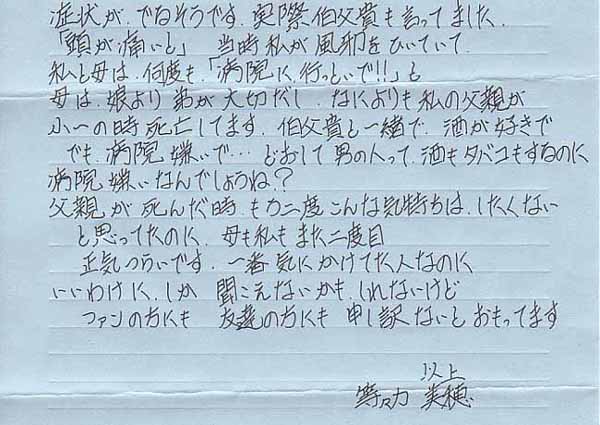 症状が、でるそうです。実際伯父貴も言ってました。
「頭が痛いと」 当時私が風邪をひいていて、
私と母は、何度も、「病院に行っといで!!」と
母は、娘より弟が大切だし、なによりも私の父親が
小一の時死亡してます。伯父貴と一緒で、酒が好きで
でも、病院嫌いで… どおして男の人って、酒もタバコもするのに
病院嫌いなんでしょうね?
父親が死んだ時、もう二度こんな気持ちは、したくない
と思ってたのに、母も私もまた二度目
正気つらいです。一番気にかけてた人なのに
いいわけに、しか聞こえないかも、しれないけど
ファンの方にも 友達の方にも 申し訳ないと おもってます
以上
等々力 美穂